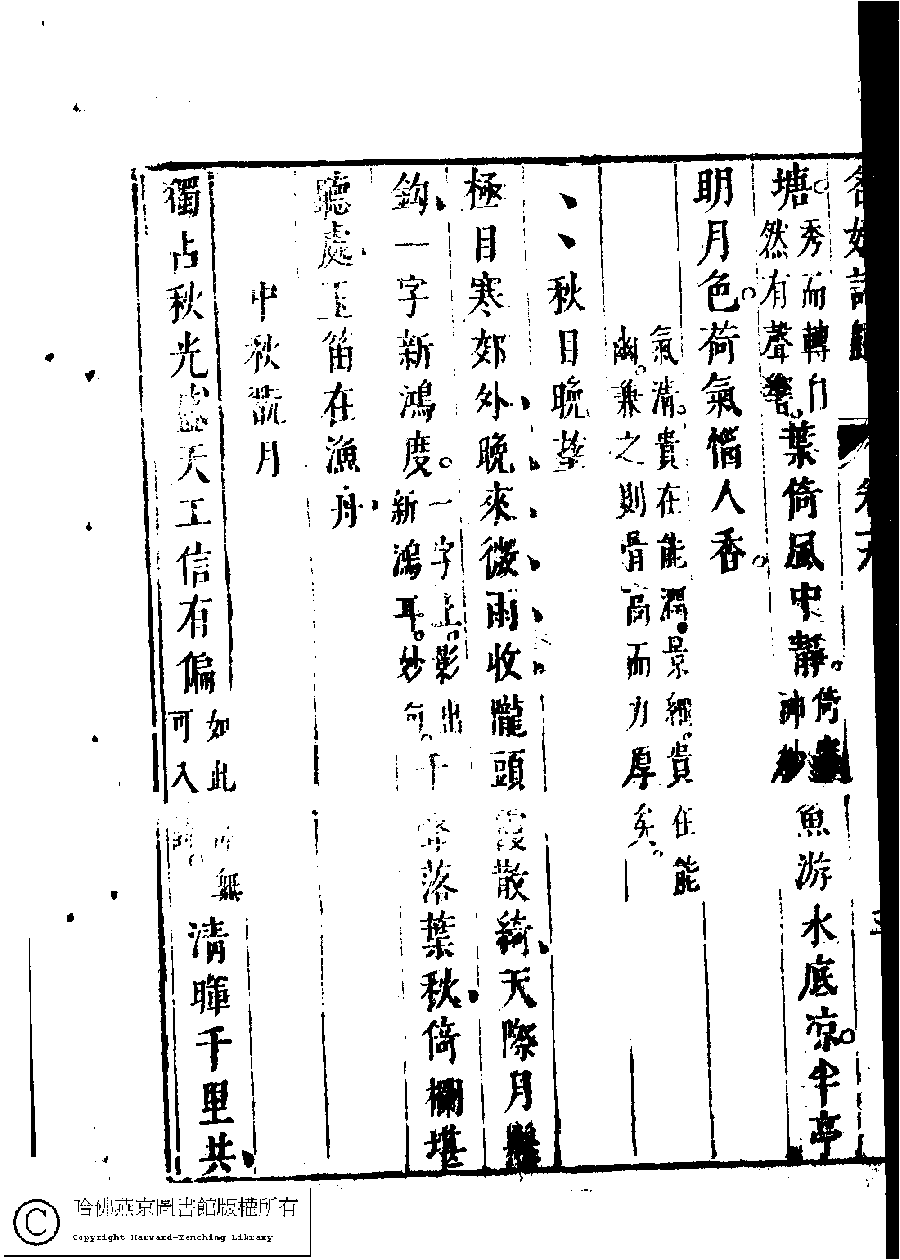 名媛詩歸 卷
塘。秀而轉自然有聲響。葉倚風中靜。倚神妙魚游水底凉。半亭
明月色。荷氣惱人香。
氣清。貴在能潤。景細。貴在能
幽。兼之則骨高而力厚矣。
、、秋日晚望
極目寒郊外、晚來微雨收、隴頭霞散綺、天際月懸
鈎、一字新鴻度。一字上。影出新鴻耳。妙句。千家落葉秋、倚欄堪
聽處、玉笛在漁舟、
中秋翫月
獨占秋光天工信有偏如此可入無清暉千里共、
哈佛燕京圖書館版權所有
Copyright Harvard-Yenching Library